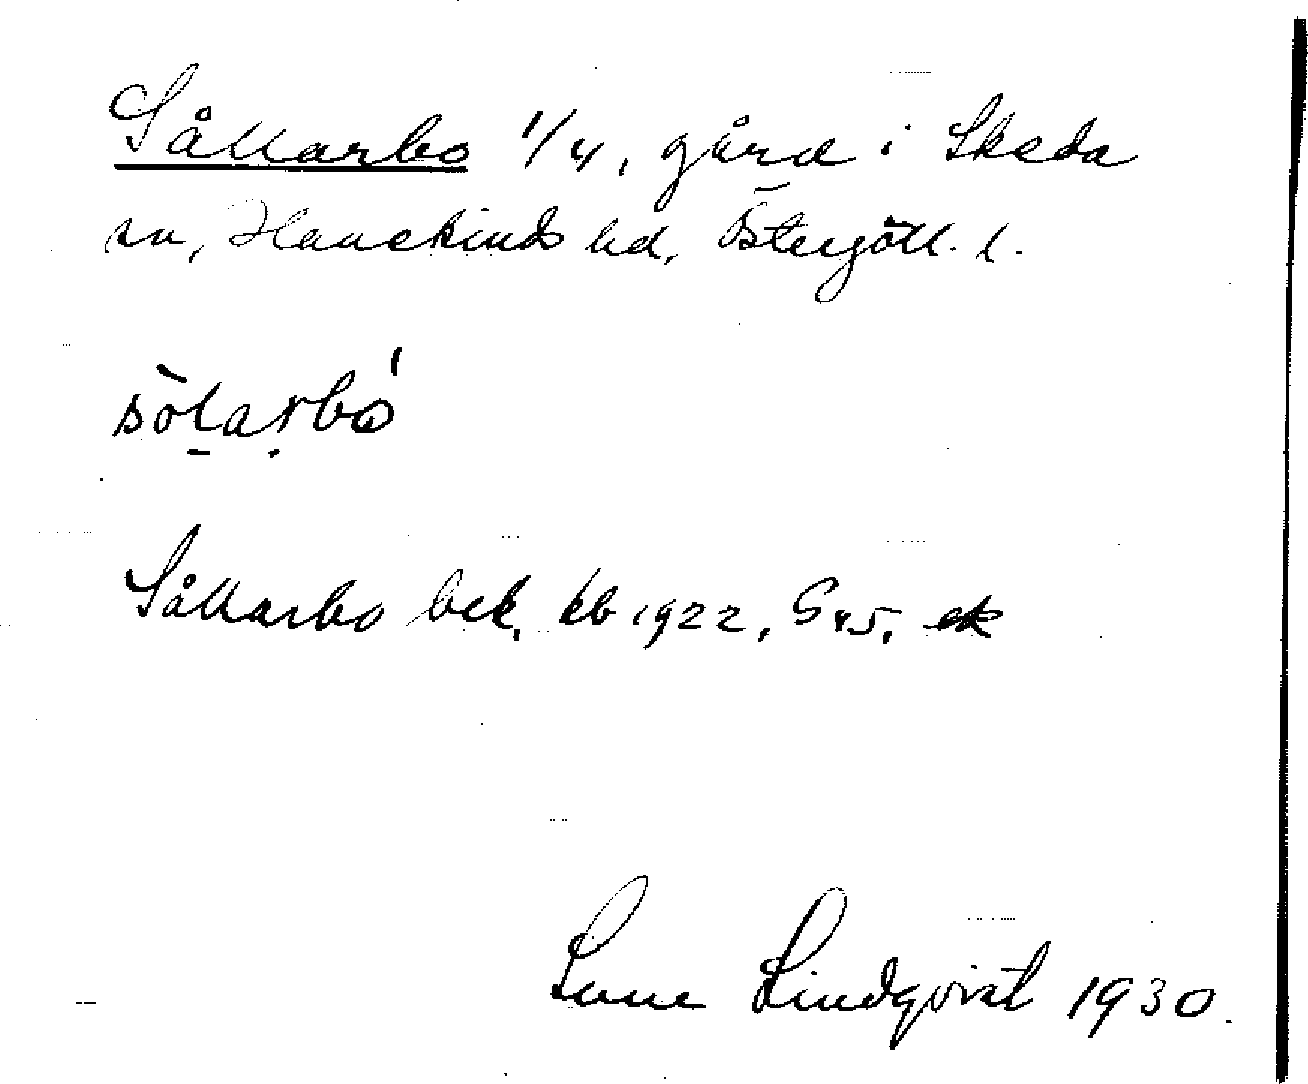 Sållarbo 1/4, gård i Skeda
sn, Hanekinds hd, Östergötl. l.
sòlarbó
Sållarbo bek, kb 1922, S 45.
Sune Lindqvist 1930.